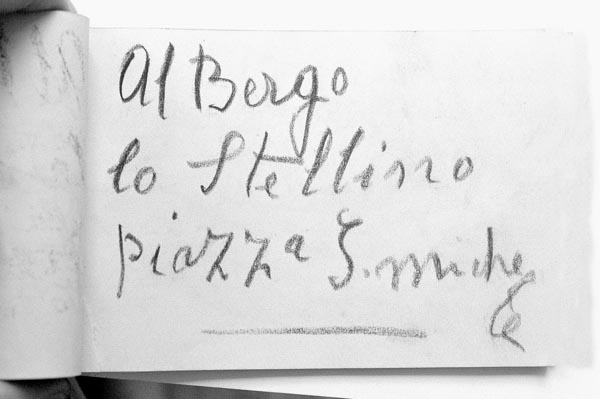 Al Bergo
lo Stellino
piazza S. michele